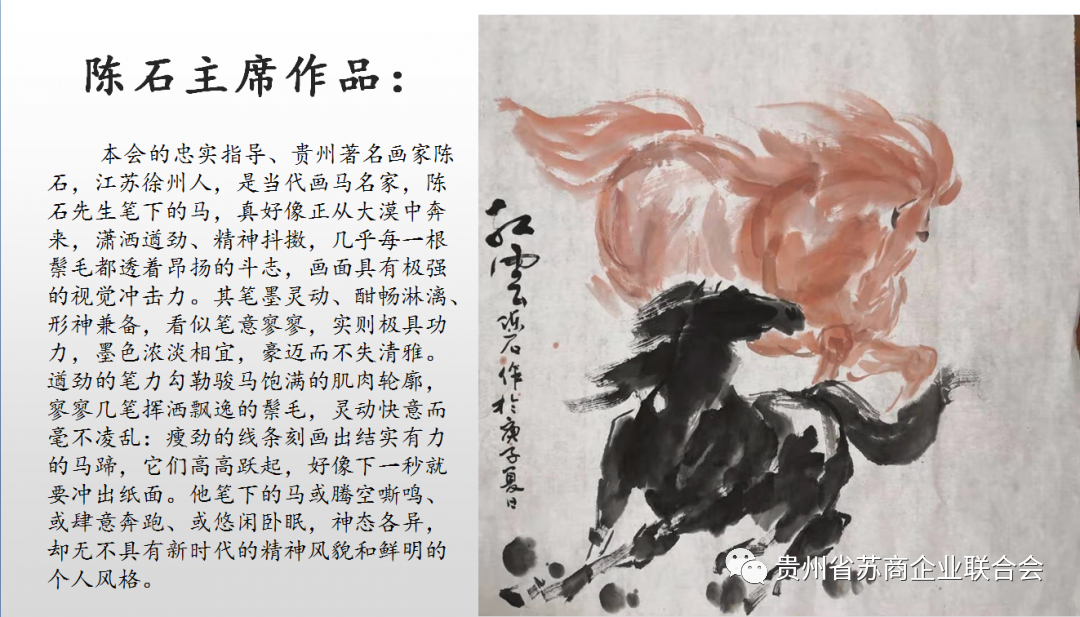 陈石主席作品：
本会的忠实指导、贵州著名画家陈
石，江苏徐州人，是当代画马名家，陈
石先生笔下的马，真好像正从大漠中奔
来，潇洒遒劲、精神抖擞，几乎每一根
鬃毛都透着昂扬的斗志，画面具有极强
的视觉冲击力。其笔墨灵动、酣畅淋漓、
形神兼备，看似笔意寥寥，实则极具功
力，墨色浓淡相宜，豪迈而不失清雅。
遒劲的笔力勾勒骏马饱满的肌肉轮廓，
寥寥几笔挥洒飘逸的鬃毛，灵动快意而
毫不凌乱：瘦劲的线条刻画出结实有力
的马蹄，它们高高跃起，好像下一秒就
要冲出纸面。他笔下的马或腾空嘶鸣、
或肆意奔跑、或悠闲卧眠，神态各异，
却无不具有新时代的精神风貌和鲜明的
个人风格。
红云陈石作于庚子夏日
贵州省苏商企业联合会